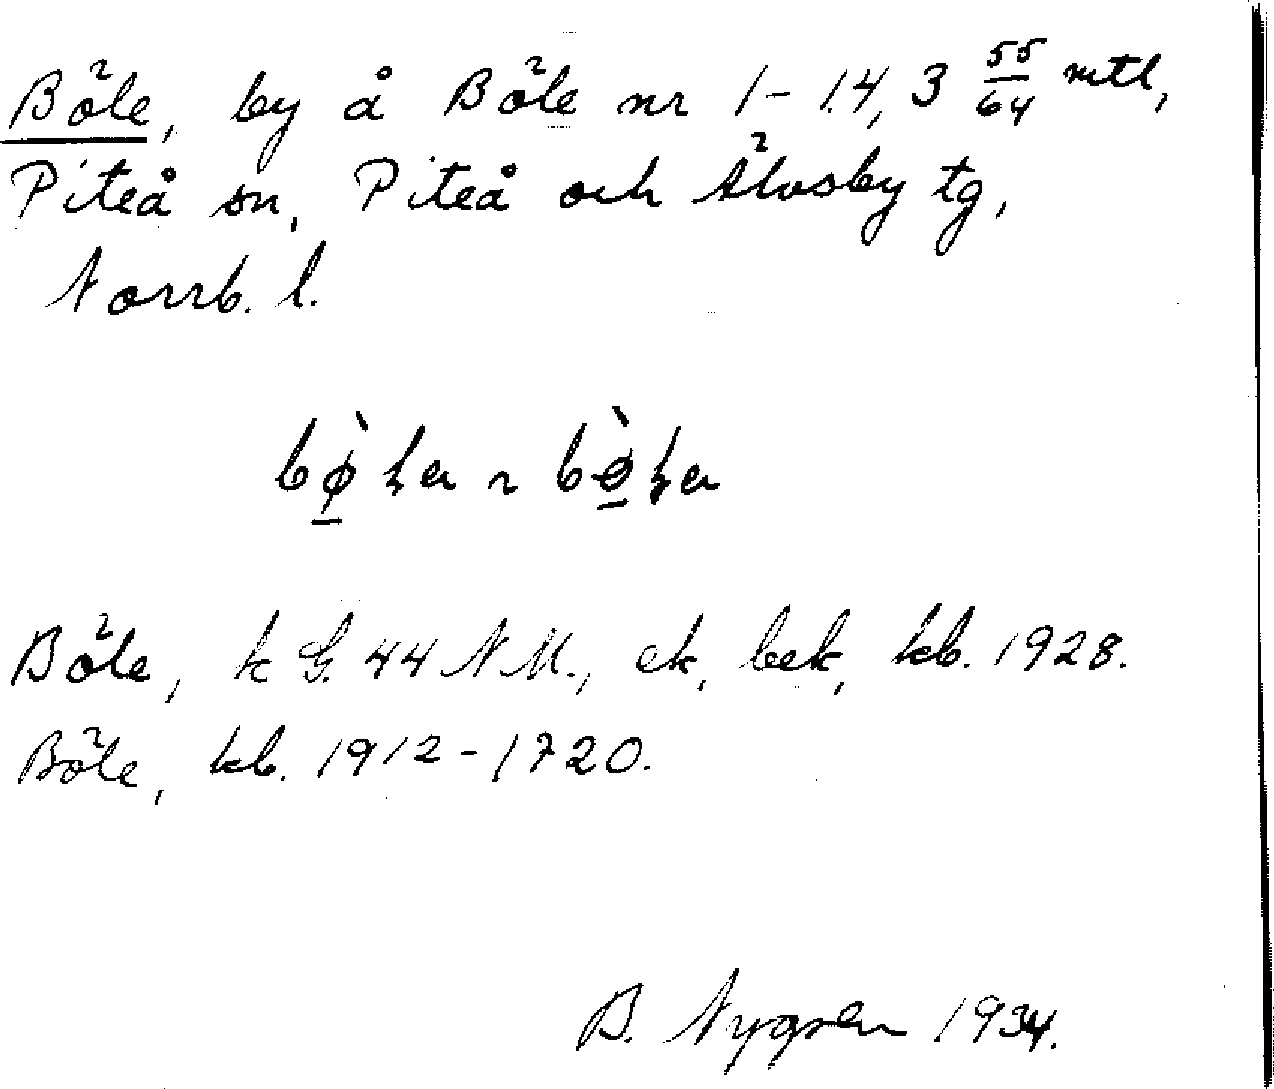 Böle, by å Böle nr 1-14, 3 55/64 mtl,
Piteå sn, Piteå och Älvsby tg,
Norrb. l.
Böle, k G. 44 N M., ek, bek, kb. 1928.
Böle, kb. 1912-1720.
B. Nygren 1934.